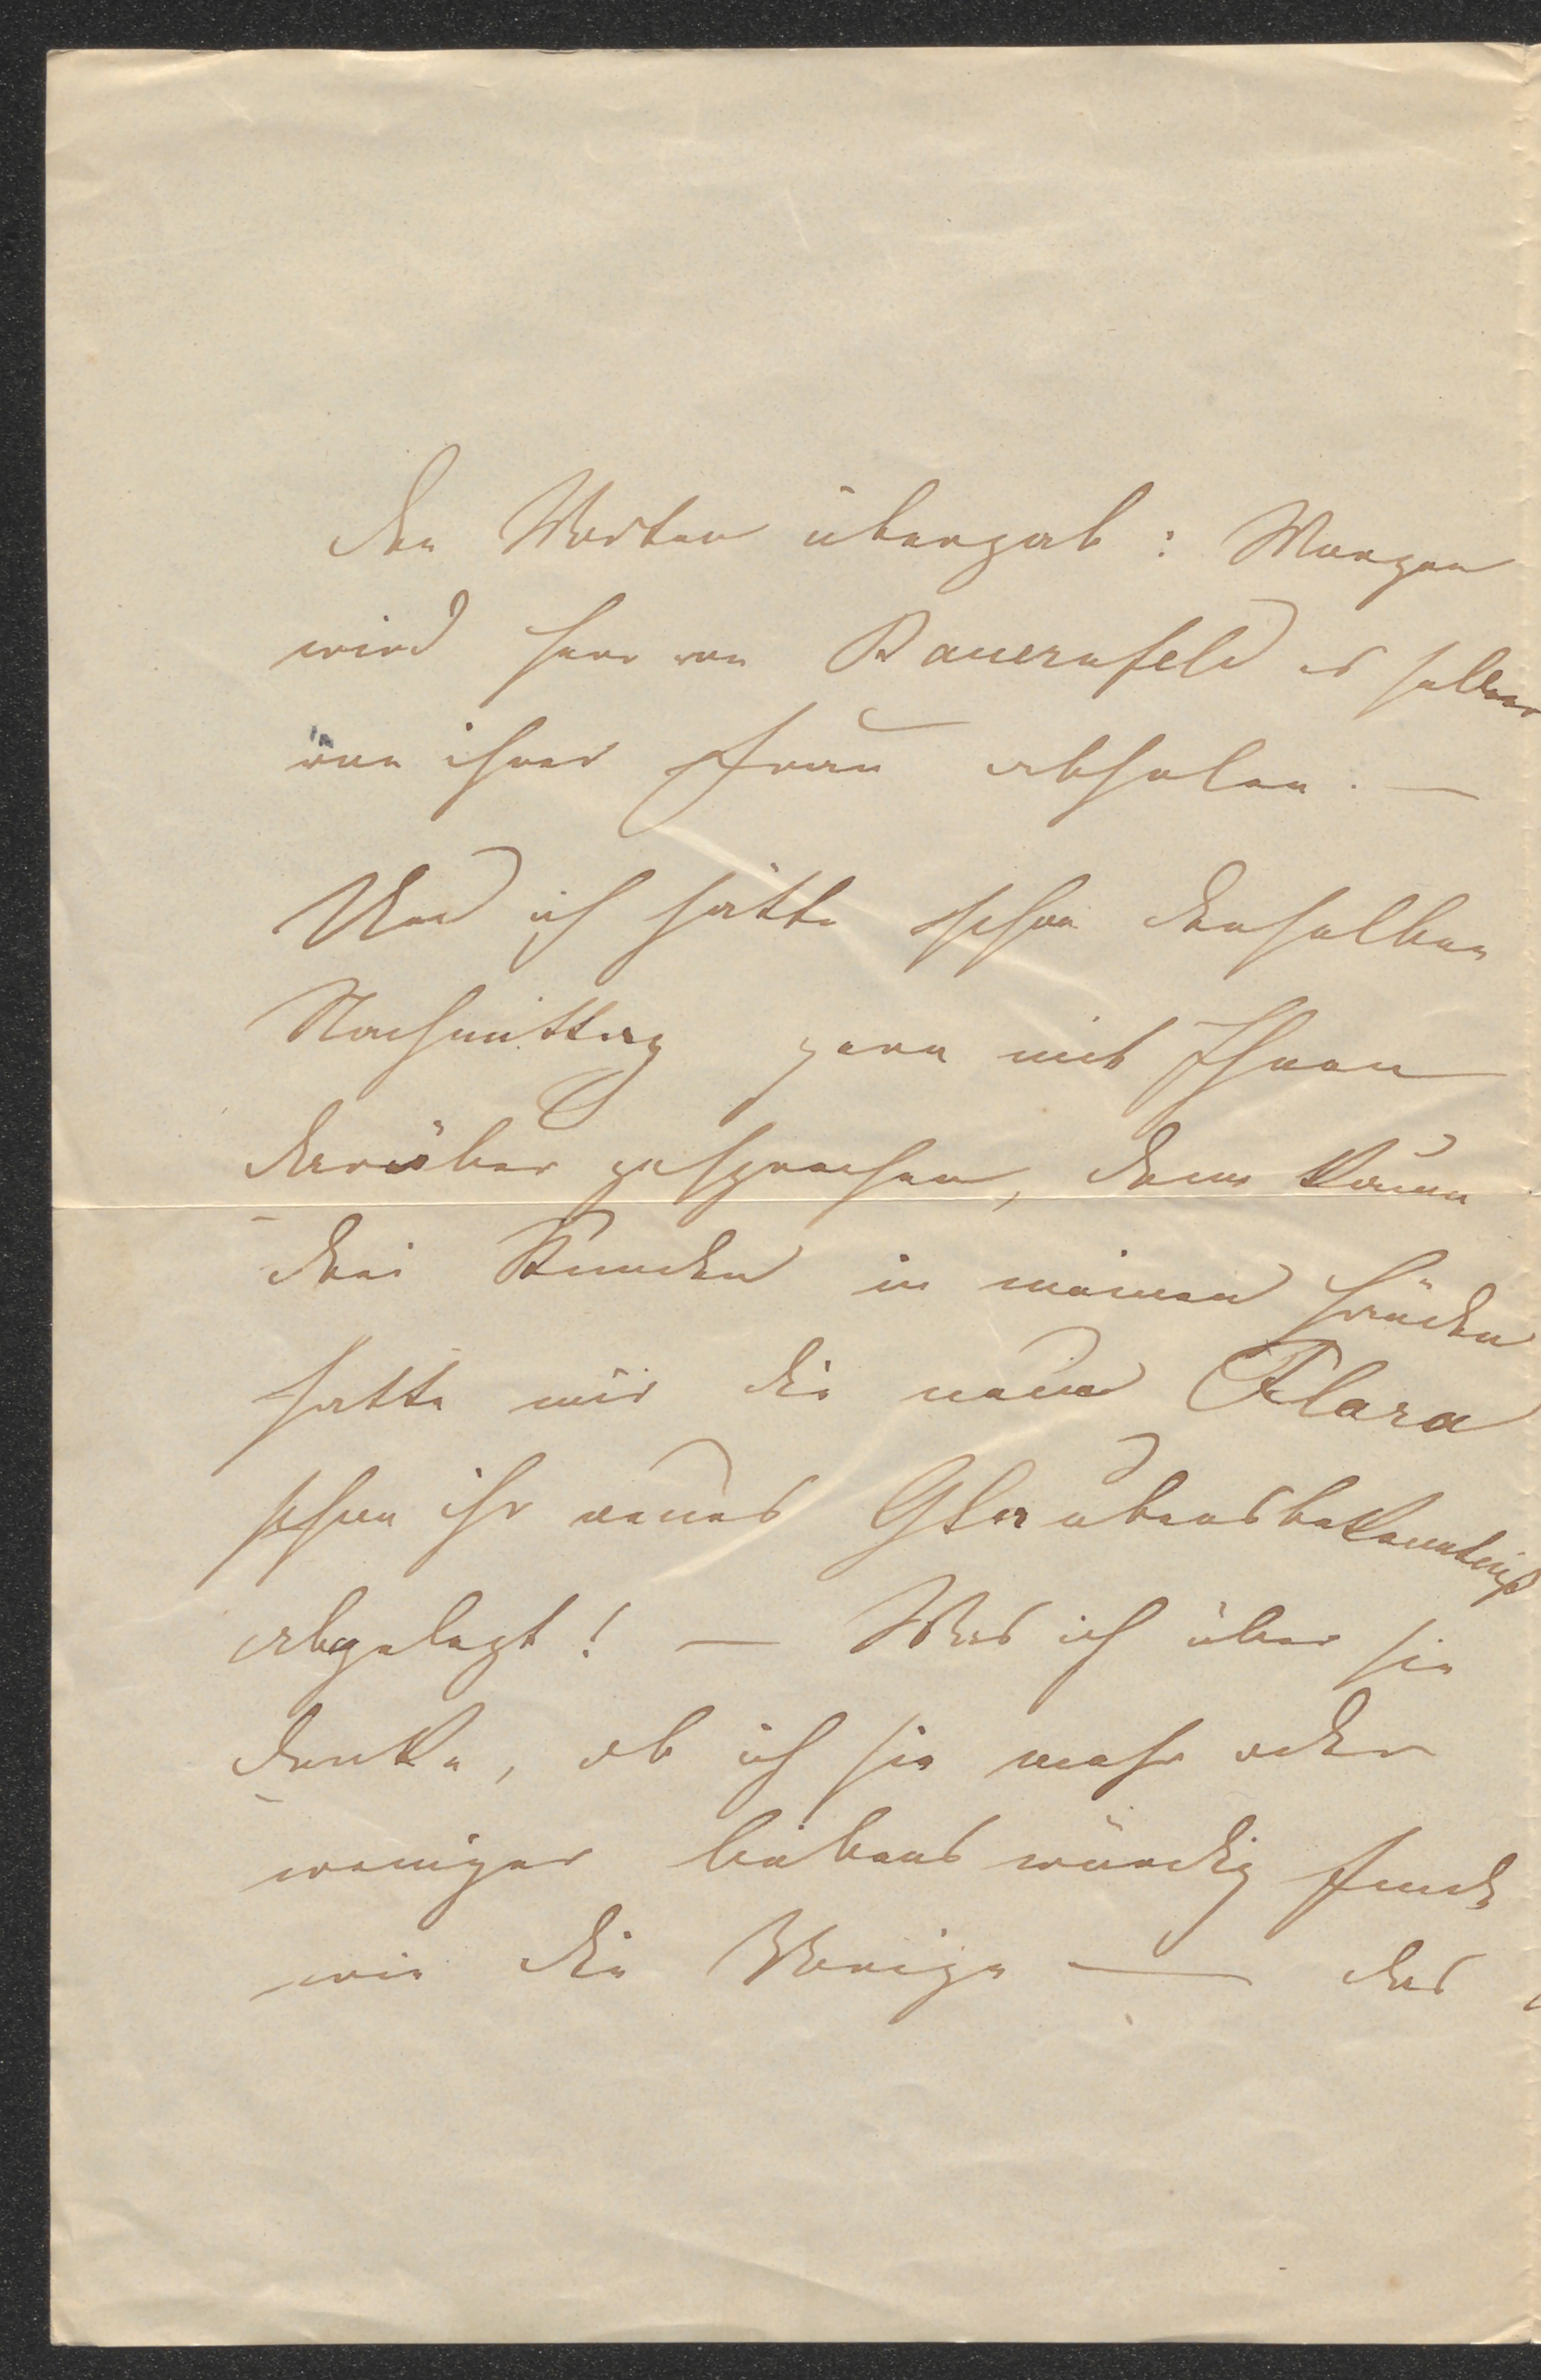 den Worten übergab: Morgen
wird Herr von Bauernfeld es selber
von ihrer Frau abholen. —
Und ich hätte schon denselben
Nachmittag gern mit Ihnen
darüber gesprochen, denn kaum
drei Stunden in meinen Händen
hatte mir die neue Klara
schon ihr neues Glaubensbekenntniß
abgelegt! — Was ich über sie
denke, ob ich sie mehr oder
weniger liebenswürdig finde
wie die Vorige — das